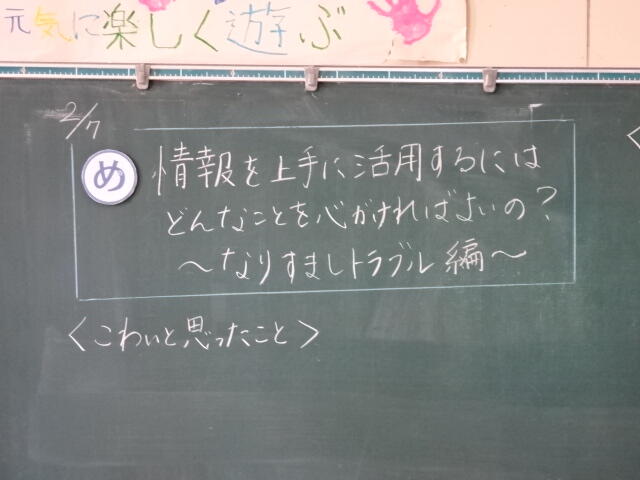 元気に楽しく遊ぶ
2/7
め
情報を上手に活用するには
どんなことを心がければよいの?
～なりすましトラブル編～
<こわいと思ったこと>
<